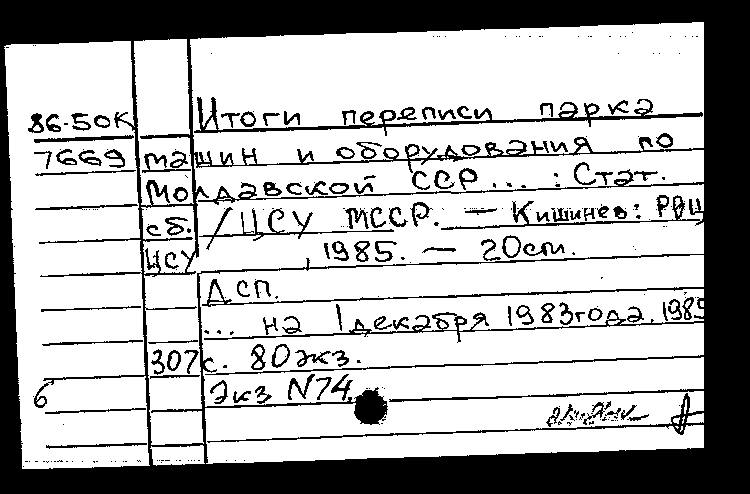 86-50К Итоги переписи парка
7669 машин и оборудования по
Молдавской ССР... : Стат.
сб. / ЦСУ МССР. — Кишинев: РВЦ
ЦСУ, 1985. — 20 cm.
ДСП.
... на 1 декабря 1983 года. 1985
307 с. 80 экз.
6 Экз N74.